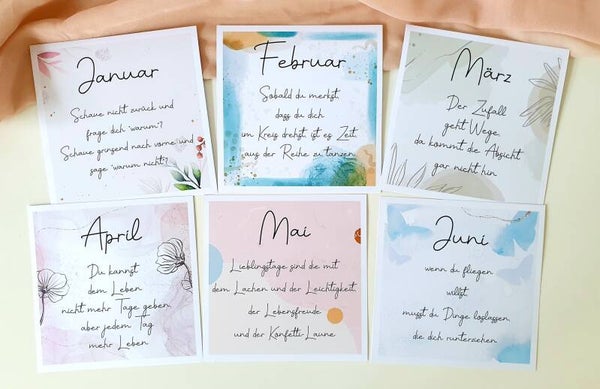 Januar
Schaue nicht zurück und
frage dich 'warum'?
Schaue grinsend nach vorne und
sage 'warum nicht'?
Februar
Sobald du merkst,
dass du dich
im Kreis drehst, ist es Zeit
aus der Reihe zu tanzen.
März
Der Zufall
geht Wege,
da kommt die Absicht
gar nicht hin.
April
Du kannst
dem Leben
nicht mehr Tage geben,
aber jedem Tag
mehr Leben.
Mai
Lieblingstage sind die mit
dem Lachen und der Leichtigkeit,
der Lebensfreude
und der Konfetti Laune.
Juni
wenn du fliegen
willst,
musst du Dinge loslassen,
die dich runterziehen.